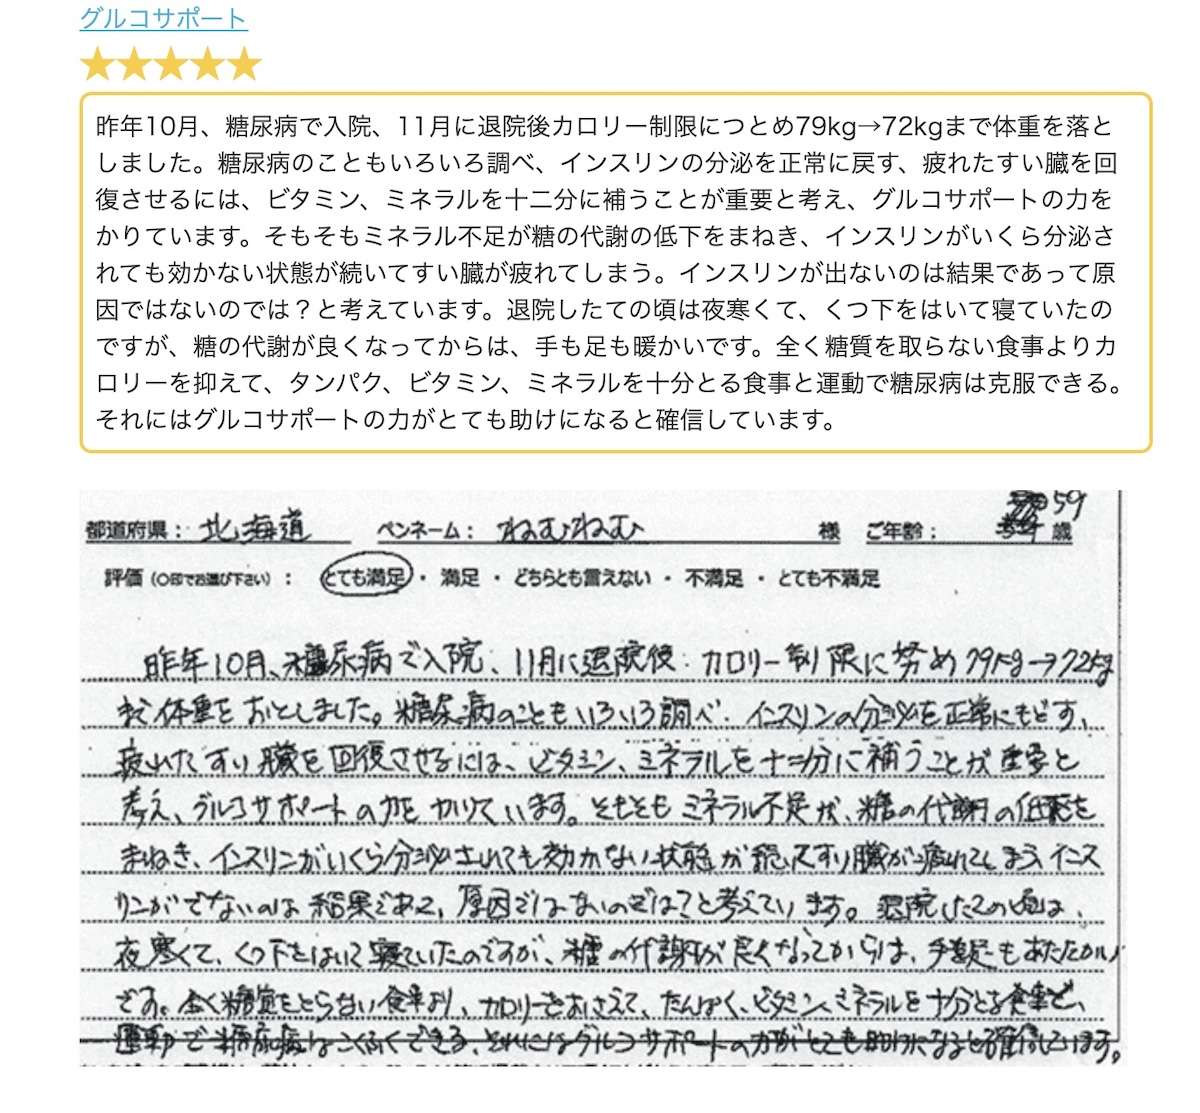 グルコサポート
★★★★★
昨年10月、糖尿病で入院、11月に退院後カロリー制限につとめ79kg→72kgまで体重を落と
しました。糖尿病のこともいろいろ調べ、インスリンの分泌を正常に戻す、疲れたすい臓を回
復させるには、ビタミン、ミネラルを十二分に補うことが重要と考え、グルコサポートの力を
かりています。そもそもミネラル不足が糖の代謝の低下をまねき、インスリンがいくら分泌さ
れても効かない状態が続いてすい臓が疲れてしまう。インスリンが出ないのは結果であって原
因ではないのでは？と考えています。退院したての頃は夜寒くて、くつ下をはいて寝ていたの
ですが、糖の代謝が良くなってからは、手も足も暖かいです。全く糖質を取らない食事よりカ
ロリーを抑えて、タンパク、ビタミン、ミネラルを十分とる食事と運動で糖尿病は克服できる。
それにはグルコサポートの力がとても助けになると確信しています。
都道府県：北海道 ペンネーム：ねむねむ 様 ご年齢：59歳
評価（○印でお選び下さい）：とても満足・満足・どちらとも言えない・不満足・とても不満足
昨年10月、糖尿病で入院、11月に退院後：カロリー制限に努め79kg→72kg
まで体重をおとしました。糖尿病のこともいろいろ調べ、インスリンの分泌を正常にもどす、
疲れたすい臓を回復させるには、ビタミン、ミネラルを十二分に補うことが重要と
考え、グルコサポートの力をかりています。そもそもミネラル不足が、糖の代謝の低下を
まねき、インスリンがいくら分泌されても効かない状態が続いてすい臓が疲れてしまう インス
リンがでないのは結果であって、原因ではないのでは？と考えています。退院したての頃は、
夜寒くて、くつ下をはいて寝ていたのですが、糖の代謝が良くなってからは、手も足もあたたかい
です。全く糖質をとらない食事より、カロリーをおさえて、たんぱく、ビタミン、ミネラルを十分とる食事と、
運動で糖尿病はこくふくできる、それにはグルコサポートの力がとても助けになると確信しています。